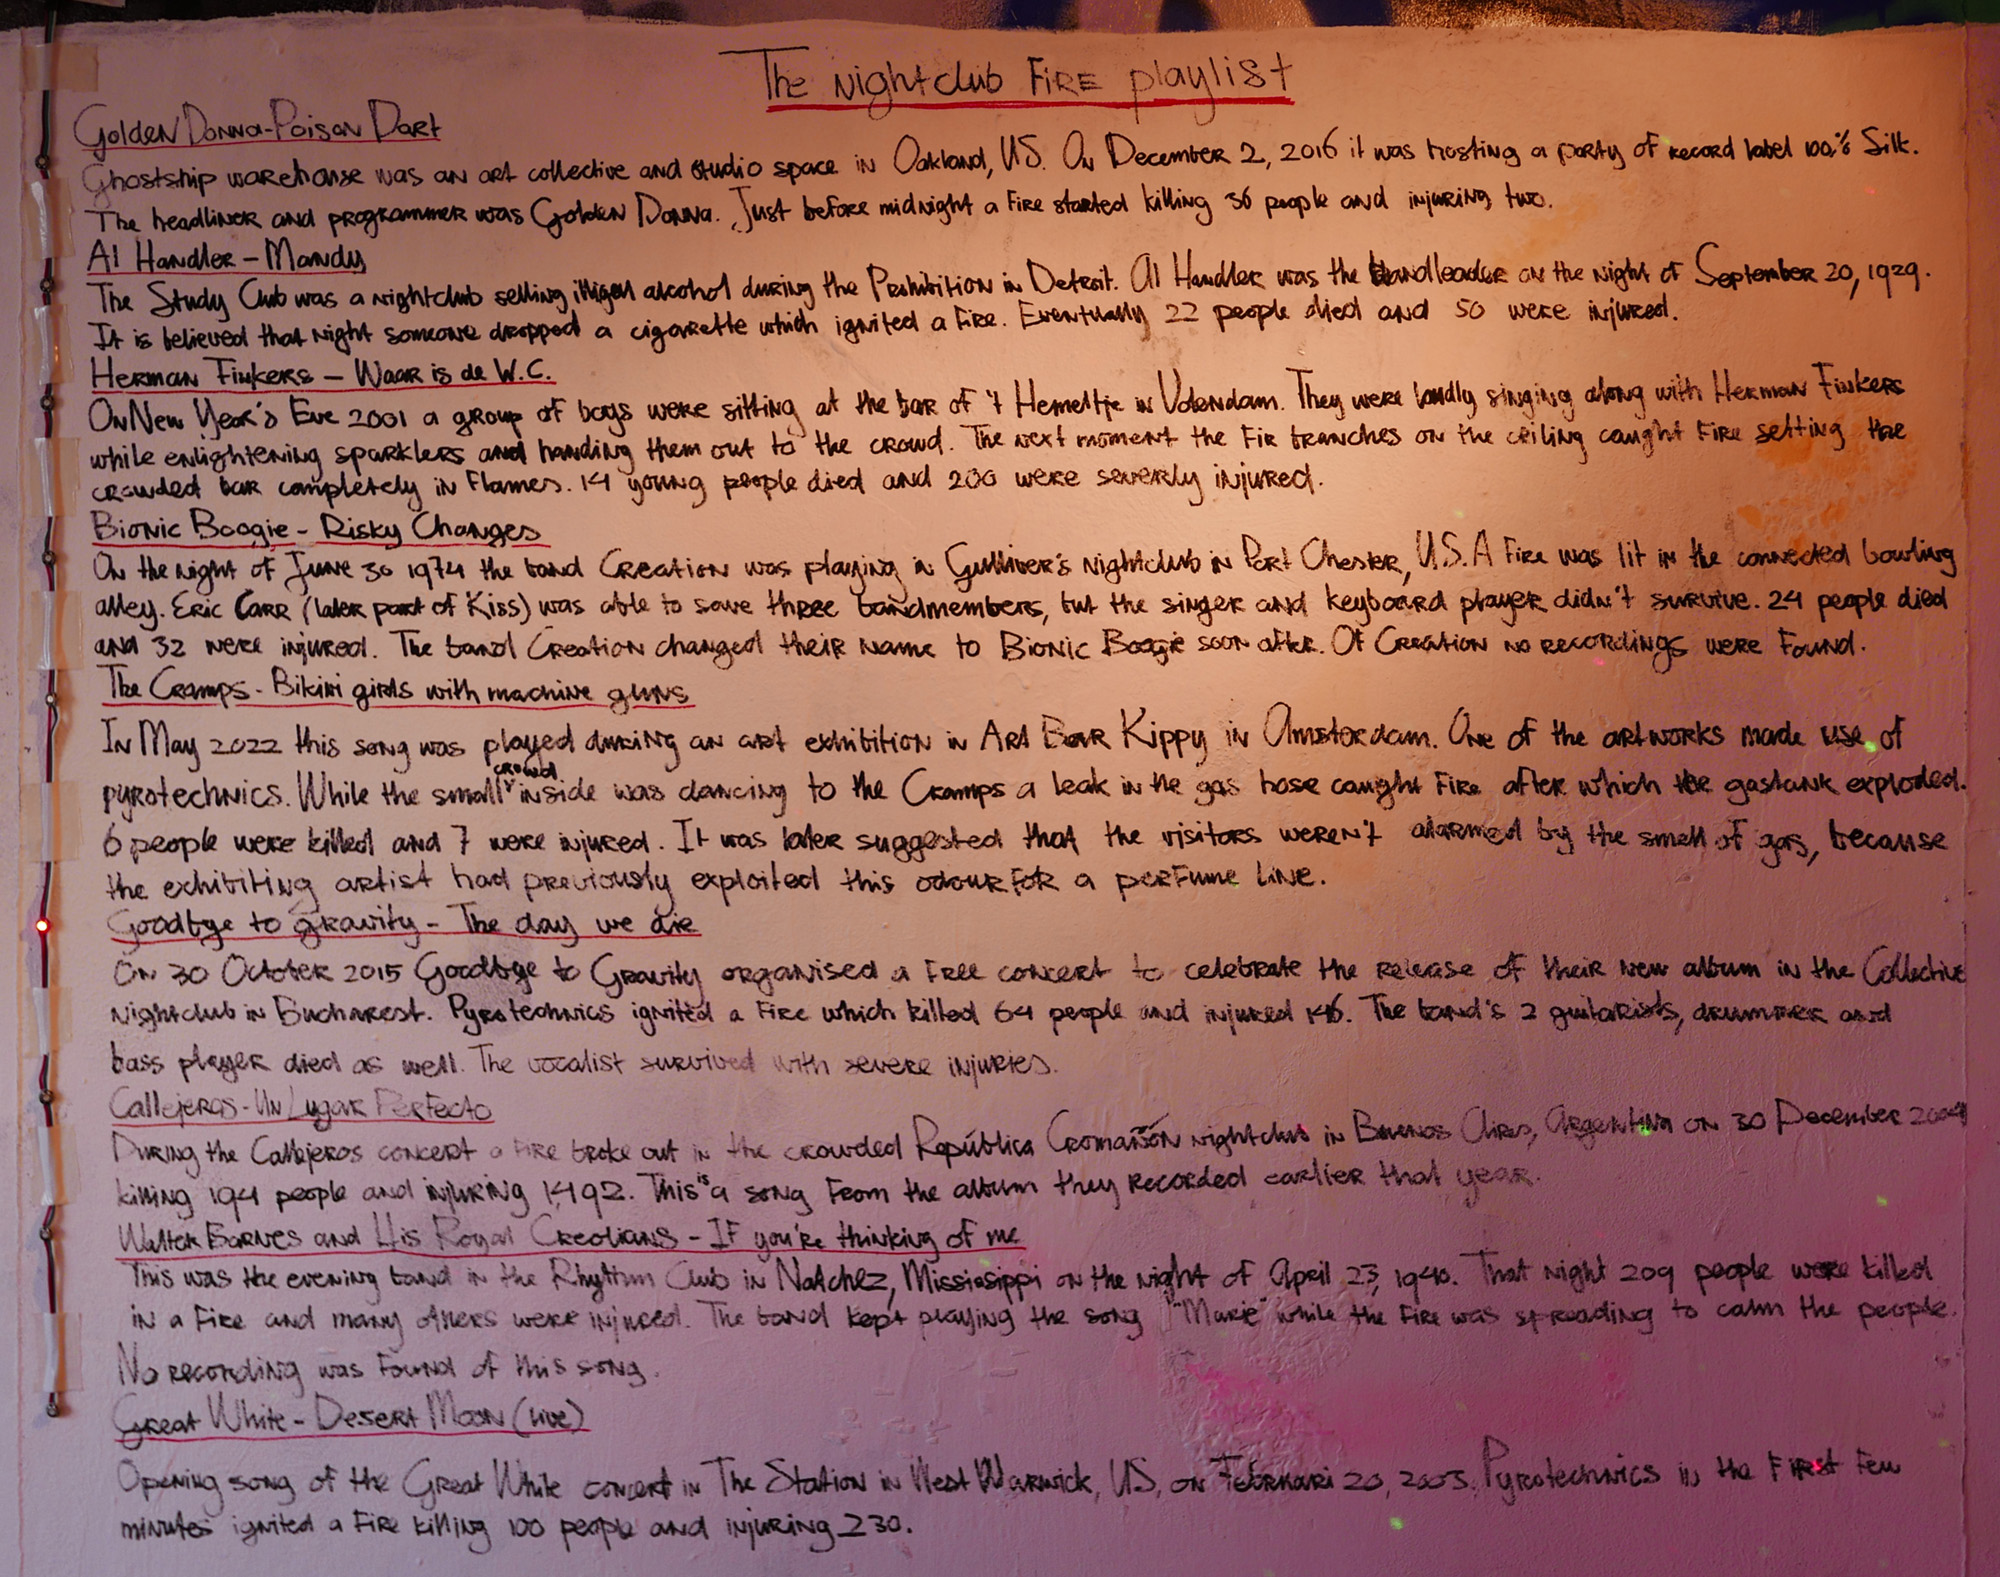 The nightclub Fire playlist
Golden Donna-Poison Dart
Ghostship warehouse was an art collective and studio space in Oakland, US. On December 2, 2016 it was hosting a party of record label 100% Silk.
The headliner and programmer was Golden Donna. Just before midnight a fire started killing 36 people and injuring two.
Al Handler - Mandy
The Study Club was a nightclub selling illigal alcohol during the Prohibition in Detroit. Al Handler was the bandleader on the night of September 20, 1929.
It is believed that night someone dropped a cigarette which ignited a fire. Eventually 22 people died and 50 were injured.
Herman Finkers - Waar is de W.C.
On New Year's Eve 2001 a group of boys were sitting at the bar of 't Hemeltje in Volendam. They were loudly singing along with Herman Finkers
while enlightening sparklers and handing them out to the crowd. The next moment the fir branches on the ceiling caught fire setting the
crowded bar completely in flames. 14 young people died and 200 were severly injured.
Bionic Boogie - Risky Changes
On the night of June 30 1974 the band Creation was playing in Gulliver's nightclub in Port Chester, U.S. A fire was lit in the connected bowling
alley. Eric Carr (later part of Kiss) was able to save three bandmembers, but the singer and keyboard player didn't survive. 24 people died
and 32 were injured. The band Creation changed their name to Bionic Boogie soon after. Of Creation no recordings were found.
The Cramps - Bikini girls with machine guns
In May 2022 this song was played during an art exhibition in Art Bar Kippy in Amsterdam. One of the artworks made use of
pyrotechnics. While the small crowd inside was dancing to the Cramps a leak in the gas hose caught fire after which the gastank exploded.
6 people were killed and 7 were injured. It was later suggested that the visitors weren't alarmed by the smell of gas, because
the exhibiting artist had previously exploited this odour for a perfume line.
Goodbye to gravity - The day we die
On 30 October 2015 Goodbye to Gravity organised a free concert to celebrate the release of their new album in the Collective
nightclub in Bucharest. Pyrotechnics ignited a fire which killed 64 people and injured 146. The band's 2 guitarists, drummer and
bass player died as well. The vocalist survived with severe injuries.
Callejeros - Un Lugar Perfecto
During the Callejeros concert a fire broke out in the crowded República Cromañón nightclub in Buenos Aires, Argentina on 30 December 2004
killing 194 people and injuring 1492. This is a song from the album they recorded earlier that year.
Walter Barnes and His Royal Creolians - If you're thinking of me
This was the evening band in the Rhythm Club in Natchez, Mississippi on the night of April 23, 1940. That night 209 people were killed
in a fire and many others were injured. The band kept playing the song "Marie" while the fire was spreading to calm the people.
No recording was found of this song.
Great White - Desert Moon (live)
Opening song of the Great White concert in The Station in West Warwick, US, on Februari 20, 2003. Pyrotechnics in the first few
minutes ignited a fire killing 100 people and injuring 230.